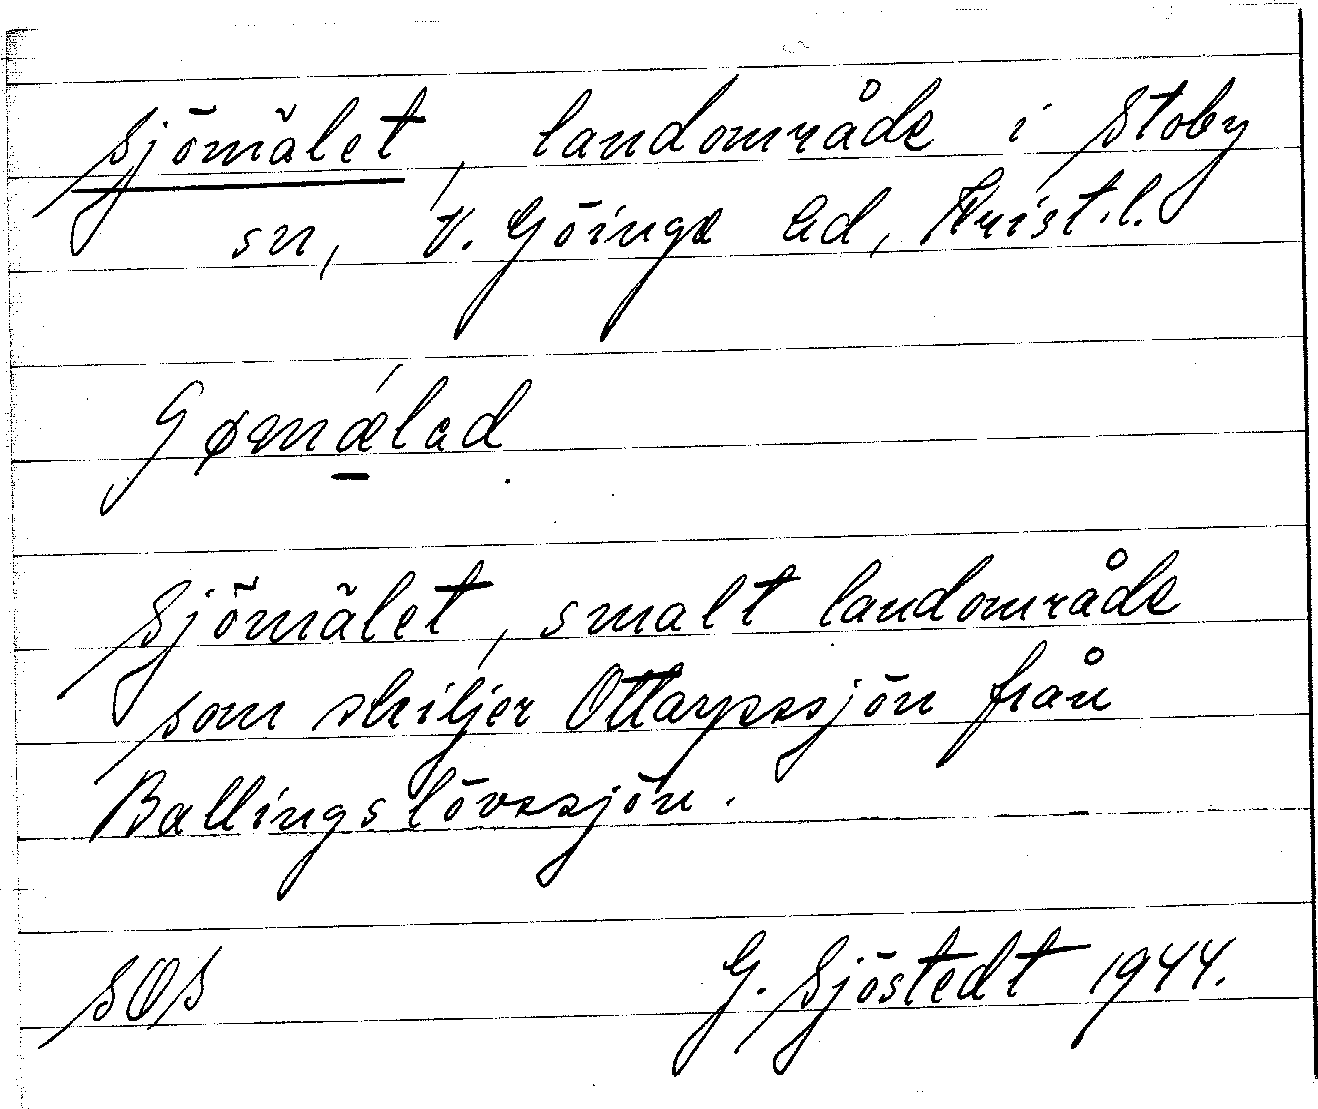 Sjömålet, landområde i Stoby
sn, V. Göinge hd, Krist.l.
Sjömålet, smalt landområde
som skiljer Ottarpssjön från
Ballingslövssjön.
SOS G. Sjöstedt 1944.